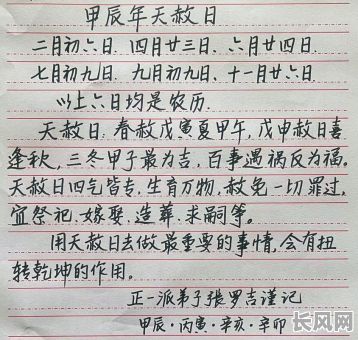 甲辰年天赦日
二月初六日.四月廿三日.六月廿四日.
七月初九日.九月初九日.十一月廿六日
以上六日均是农历.
天赦日:春赦戊寅夏甲午,戊申赦日喜
逢秋,三冬甲子最为吉,百事遇祸反为福。
天赦日四气皆专,生育万物,赦免一切罪过,
宜祭祀.嫁娶.造葬.求嗣等。
用天赦日去做最重要的事情,会有扭
转乾坤的作用。
正一派弟子張罗吉谨记
甲辰·丙寅·辛亥·辛卯
长风网